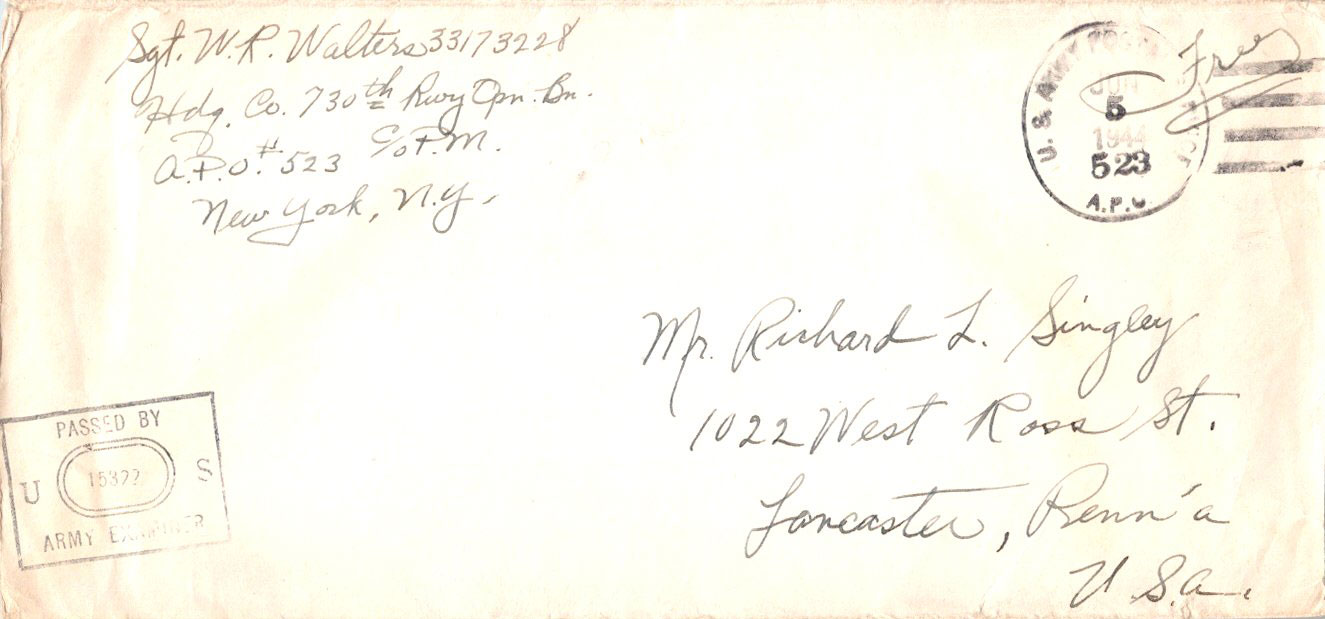 Sgt. W. R. Walters 33173228
Hdq. Co. 730th Rwy Opn. Bn.
A.P.O. # 523 c/o P.M.
New York, N.Y.
Free
U. S. ARMY POSTAL SERVICE
JUN
5
1944
523
A.P.O.
Mr. Richard L. Singley
1022 West Ross St.
Lancaster, Penn'a
U.S.A.
PASSED BY
U 15322 S
ARMY EXAMINER